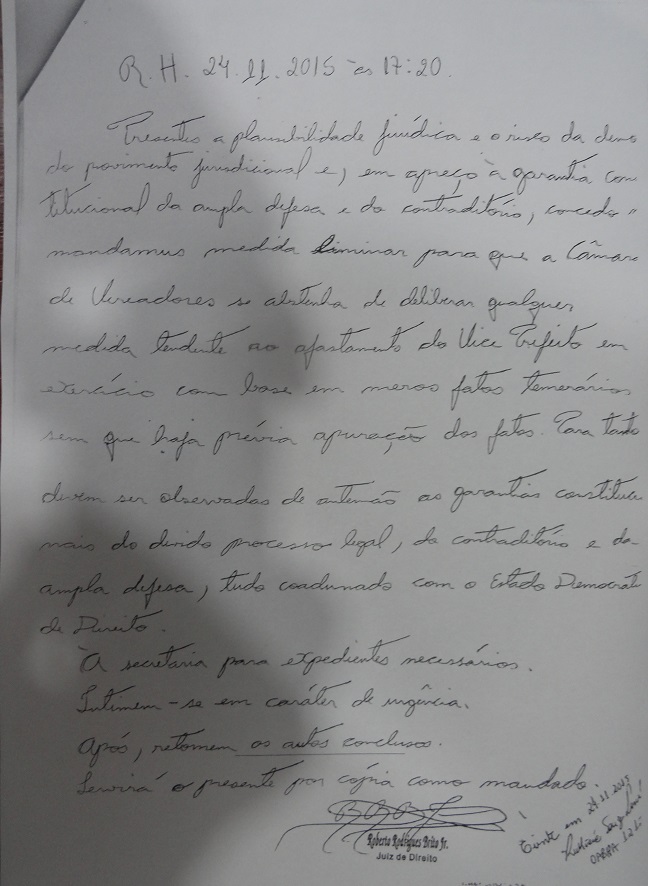 R.H. 24.11.2015 às 17:20.
Presentes a plausibilidade jurídica e o risco da demo
do provimento jurisdicional e, em apreço à garantia con
titucional da ampla defesa e do contraditório, concedo "
mandamus medida liminar para que a Câmara
de Vereadores se abstenha de deliberar qualquer
medida tendente ao afastamento do Vice Prefeito em
exercício com base em meros fatos temerários
sem que haja prévia apuração dos fatos. Para tanto
devem ser observadas de antemão as garantias constituci
nais do devido processo legal, do contraditório e da
ampla defesa, tudo coadunado com o Estado Democráti
de Direito.
À secretaria para expedientes necessários.
Intimem-se em caráter de urgência.
Após, retornem os autos conclusos.
Servirá o presente por cópia como mandado.
Roberto Rodrigues Brito Jr.
Juiz de Direito
Ciente em 24.11.2015
OAB/PA